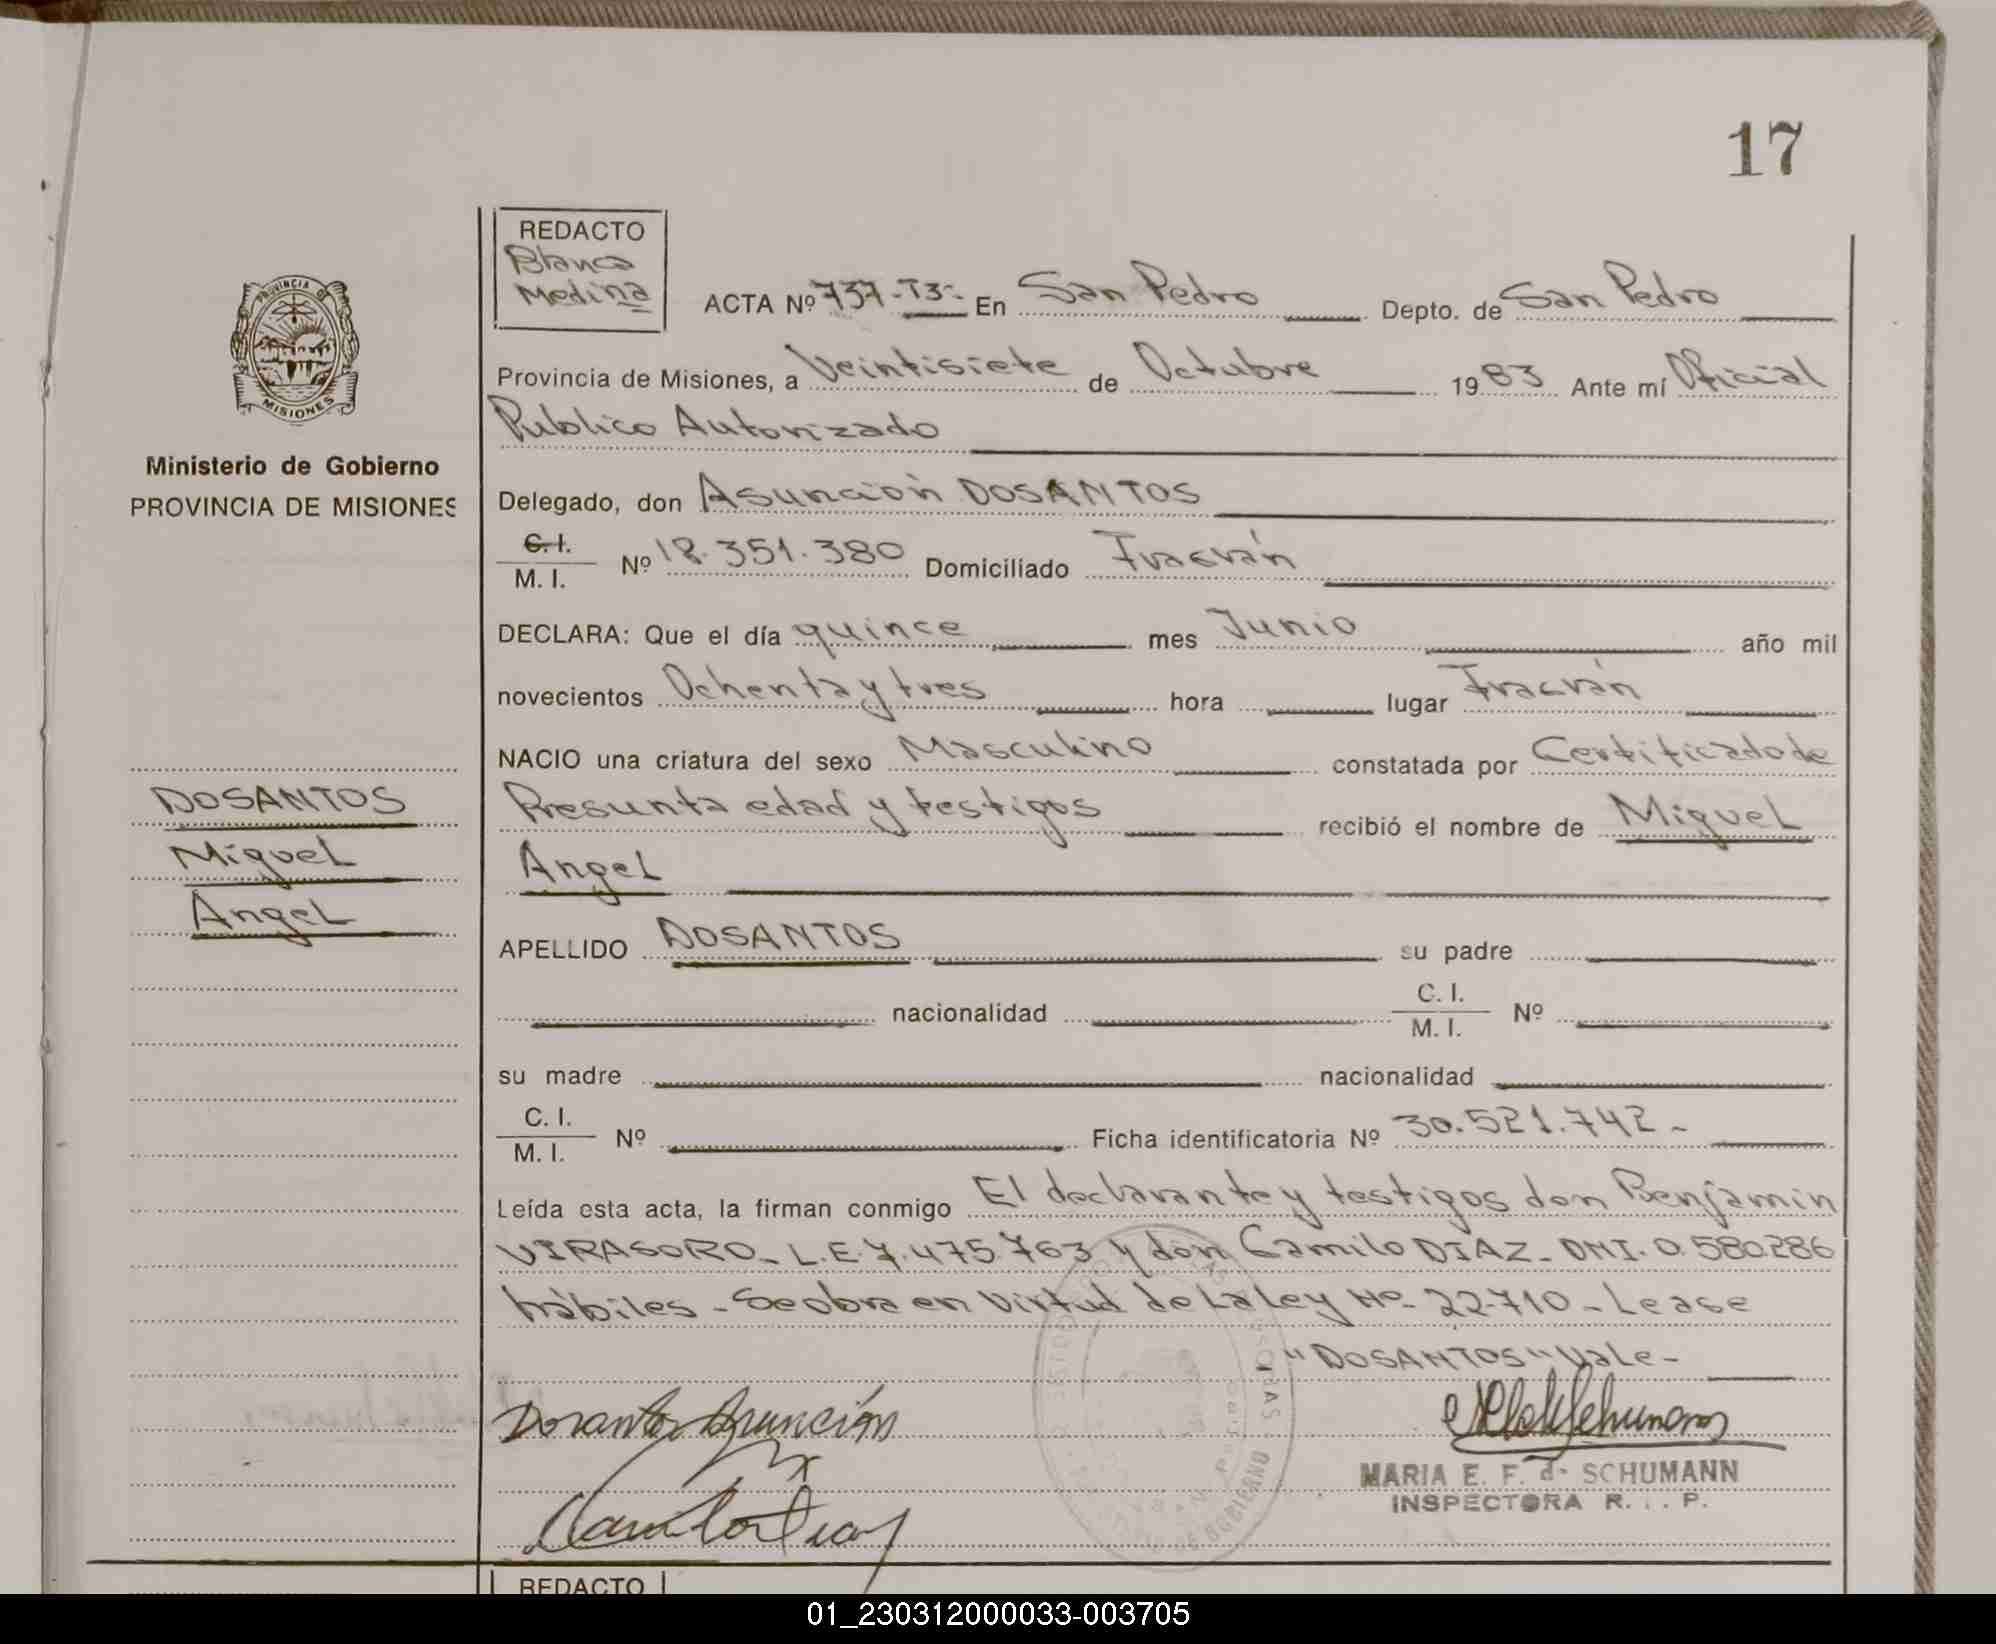 17
REDACTO
Blanca
Medina
ACTA Nº 737-T3- En San Pedro Depto. de San Pedro
Provincia de Misiones, a Veintisiete de Octubre 1983 Ante mí Oficial
Publico Autorizado
Delegado, don Asunción DOSANTOS
C. I.
M. I. Nº 18.351.380 Domiciliado Fracrán
DECLARA: Que el día quince mes Junio año mil
novecientos Ochenta y tres hora lugar Fracrán
NACIO una criatura del sexo Masculino constatada por Certificado de
Presunta edad y testigos recibió el nombre de Miguel
Angel
APELLIDO DOSANTOS su padre
nacionalidad C. I.
M. I. Nº
su madre nacionalidad
C. I.
M. I. Nº Ficha identificatoria Nº 30.521.742-
Leída esta acta, la firman conmigo El declarante y testigos don Benjamin
VIRASORO- L.E. 7.475.763 y don Camilo DIAZ- DNI. 0.580.286
hábiles - Se obra en Virtud de La Ley Nº- 22.710- Lease
"DOSANTOS" Vale-
Dosantos Asunción
MARIA E. F. d. SCHUMANN
INSPECTORA R. . . P.
PROVINCIA DE
MISIONES
Ministerio de Gobierno
PROVINCIA DE MISIONES
DOSANTOS
Miguel
Angel
REDACTO
01_230312000033-003705